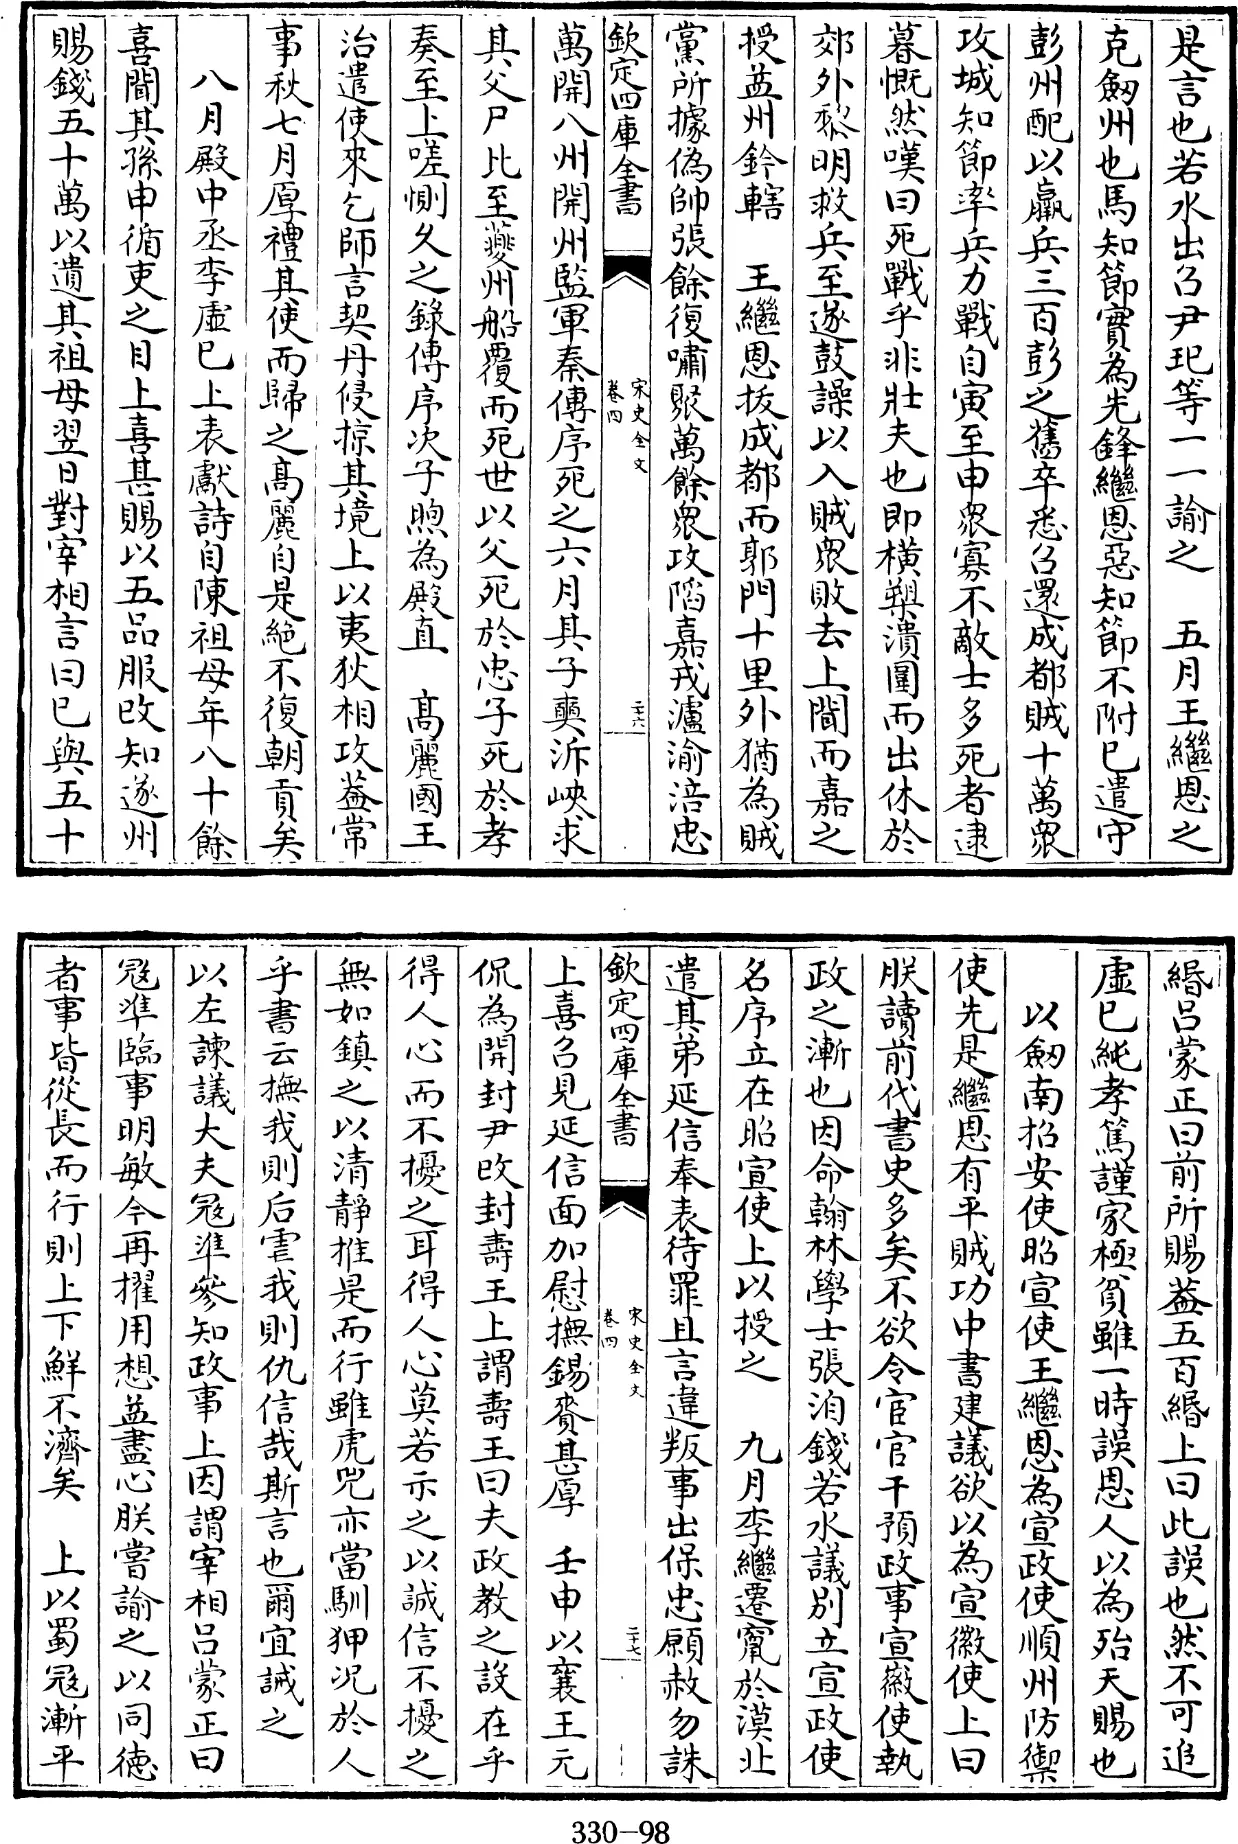 是言也若水出召尹玘等一一諭之　五月王繼恩之
克劒州也馬知節實為先鋒繼恩惡知節不附已遣守
彭州配以羸兵三百彭之舊卒悉召還成都賊十萬衆
攻城知節率兵力戰自寅至申衆寡不敵士多死者逮
暮慨然嘆曰死戰乎非壯夫也即橫槊潰圍而出休於
郊外黎明救兵至遂鼓譟以入賊衆敗去上聞而嘉之
授益州鈐轄　王繼恩拔成都而郭門十里外猶為賊
黨所據偽帥張餘復嘯聚萬餘衆攻陷嘉戎瀘渝涪忠
欽定四庫全書
宋史全文
卷四
二十六
萬開八州開州監軍秦傳序死之六月其子奭泝峽求
其父尸比至夔州船覆而死世以父死於忠子死於孝
奏至上嗟惻久之錄傳序次子煦為殿直　高麗國王
治遣使來乞師言契丹侵掠其境上以夷狄相攻葢常
事秋七月厚禮其使而歸之高麗自是絶不復朝貢矣
八月殿中丞李虛已上表獻詩自陳祖母年八十餘
喜聞其孫申循吏之目上喜甚賜以五品服改知遂州
賜錢五十萬以遺其祖母翌日對宰相言曰已與五十
緡呂蒙正曰前所賜葢五百緡上曰此誤也然不可追
虛已純孝篤謹家極貧雖一時誤恩人以為殆天賜也
以劒南招安使昭宣使王繼恩為宣政使順州防禦
使先是繼恩有平賊功中書建議欲以為宣徽使上曰
朕讀前代書史多矣不欲令宦官干預政事宣徽使執
政之漸也因命翰林學士張洎錢若水議別立宣政使
名序立在昭宣使上以授之　九月李繼遷竄於漠北
遣其弟延信奉表待罪且言違叛事出保忠願赦勿誅
欽定四庫全書
宋史全文
卷四
二十七
上喜召見延信面加慰撫錫賚甚厚　壬申以襄王元
侃為開封尹改封壽王上謂壽王曰夫政教之設在乎
得人心而不擾之耳得人心莫若示之以誠信不擾之
無如鎮之以清靜推是而行雖虎兕亦當馴狎况於人
乎書云撫我則后虐我則仇信哉斯言也爾宜誡之
以左諫議大夫冦準參知政事上因謂宰相呂蒙正曰
冦準臨事明敏今再擢用想益盡心朕嘗諭之以同德
者事皆從長而行則上下鮮不濟矣　上以蜀冦漸平
330-98